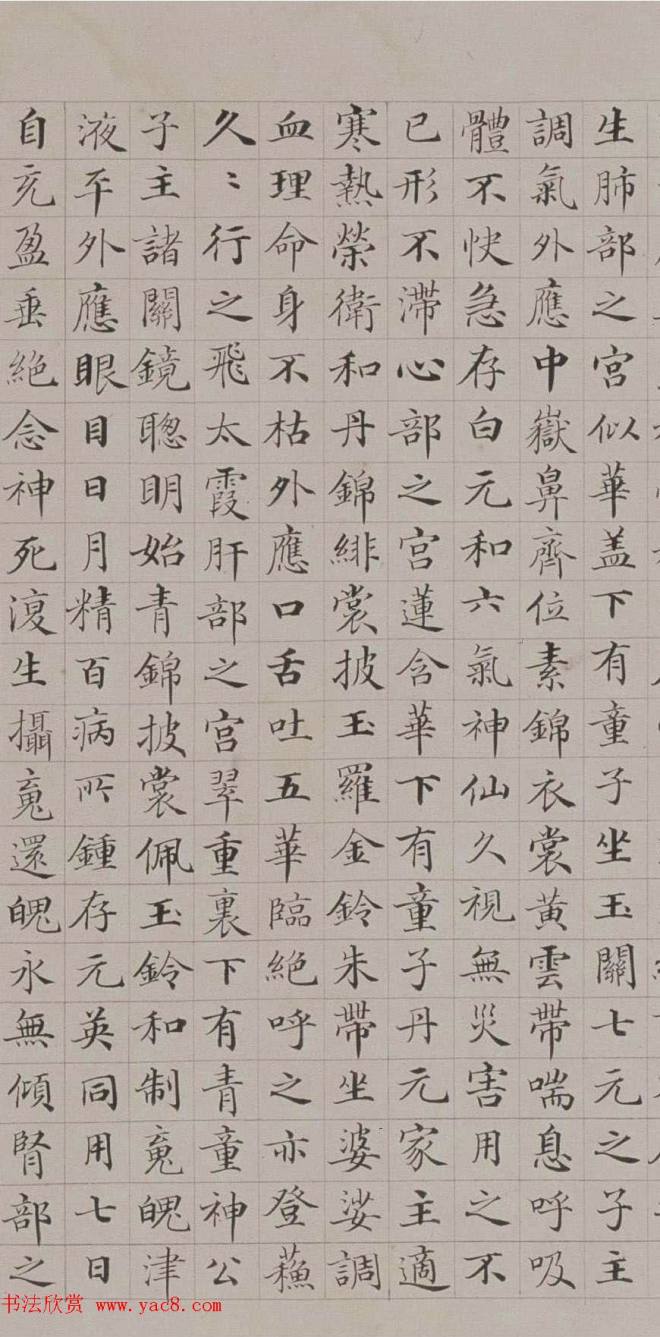 生肺部之宮似華盖下有童子坐玉闕七元之子主
調氣外應中嶽鼻齊位素錦衣裳黃雲帶喘息呼吸
體不快急存白元和六氣神仙久視無災害用之不
已形不滯心部之宮蓮含華下有童子丹元家主適
寒熱榮衛和丹錦緋裳披玉羅金鈴朱帶坐婆娑調
血理命身不枯外應口舌吐五華臨絕呼之亦登蘓
久〻行之飛太霞肝部之宮翠重裏下有青童神公
子主諸關鏡聰明始青錦披裳佩玉鈴和制䰟魄津
液平外應眼目日月精百病所鍾存元英同用七日
自充盈垂絕念神死復生攝䰟還魄永無傾腎部之
书法欣赏 www.yac8.com